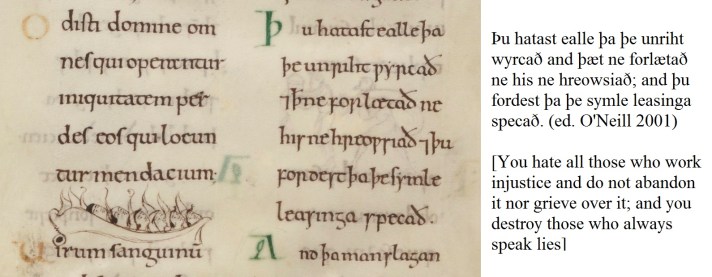 Odisti domine om
nes qui operentur
iniquitatem per
des eos qui locun
tur mendacium·
Uirum sanguinū
Þu hatast ealle þa
þe unriht ƿyrcað
⁊ þ̄ ne forlætað ne
his ne hreoƿsiað ⁊ þu
fordest þa þe symle
leasinga specað.
A no þa manslagan
Þu hatast ealle þa þe unriht
wyrcað and þæt ne forlætað
ne his ne hreowsiað; and þu
fordest þa þe symle leasinga
specað. (ed. O'Neill 2001)
[You hate all those who work
injustice and do not abandon
it nor grieve over it; and you
destroy those who always
speak lies]